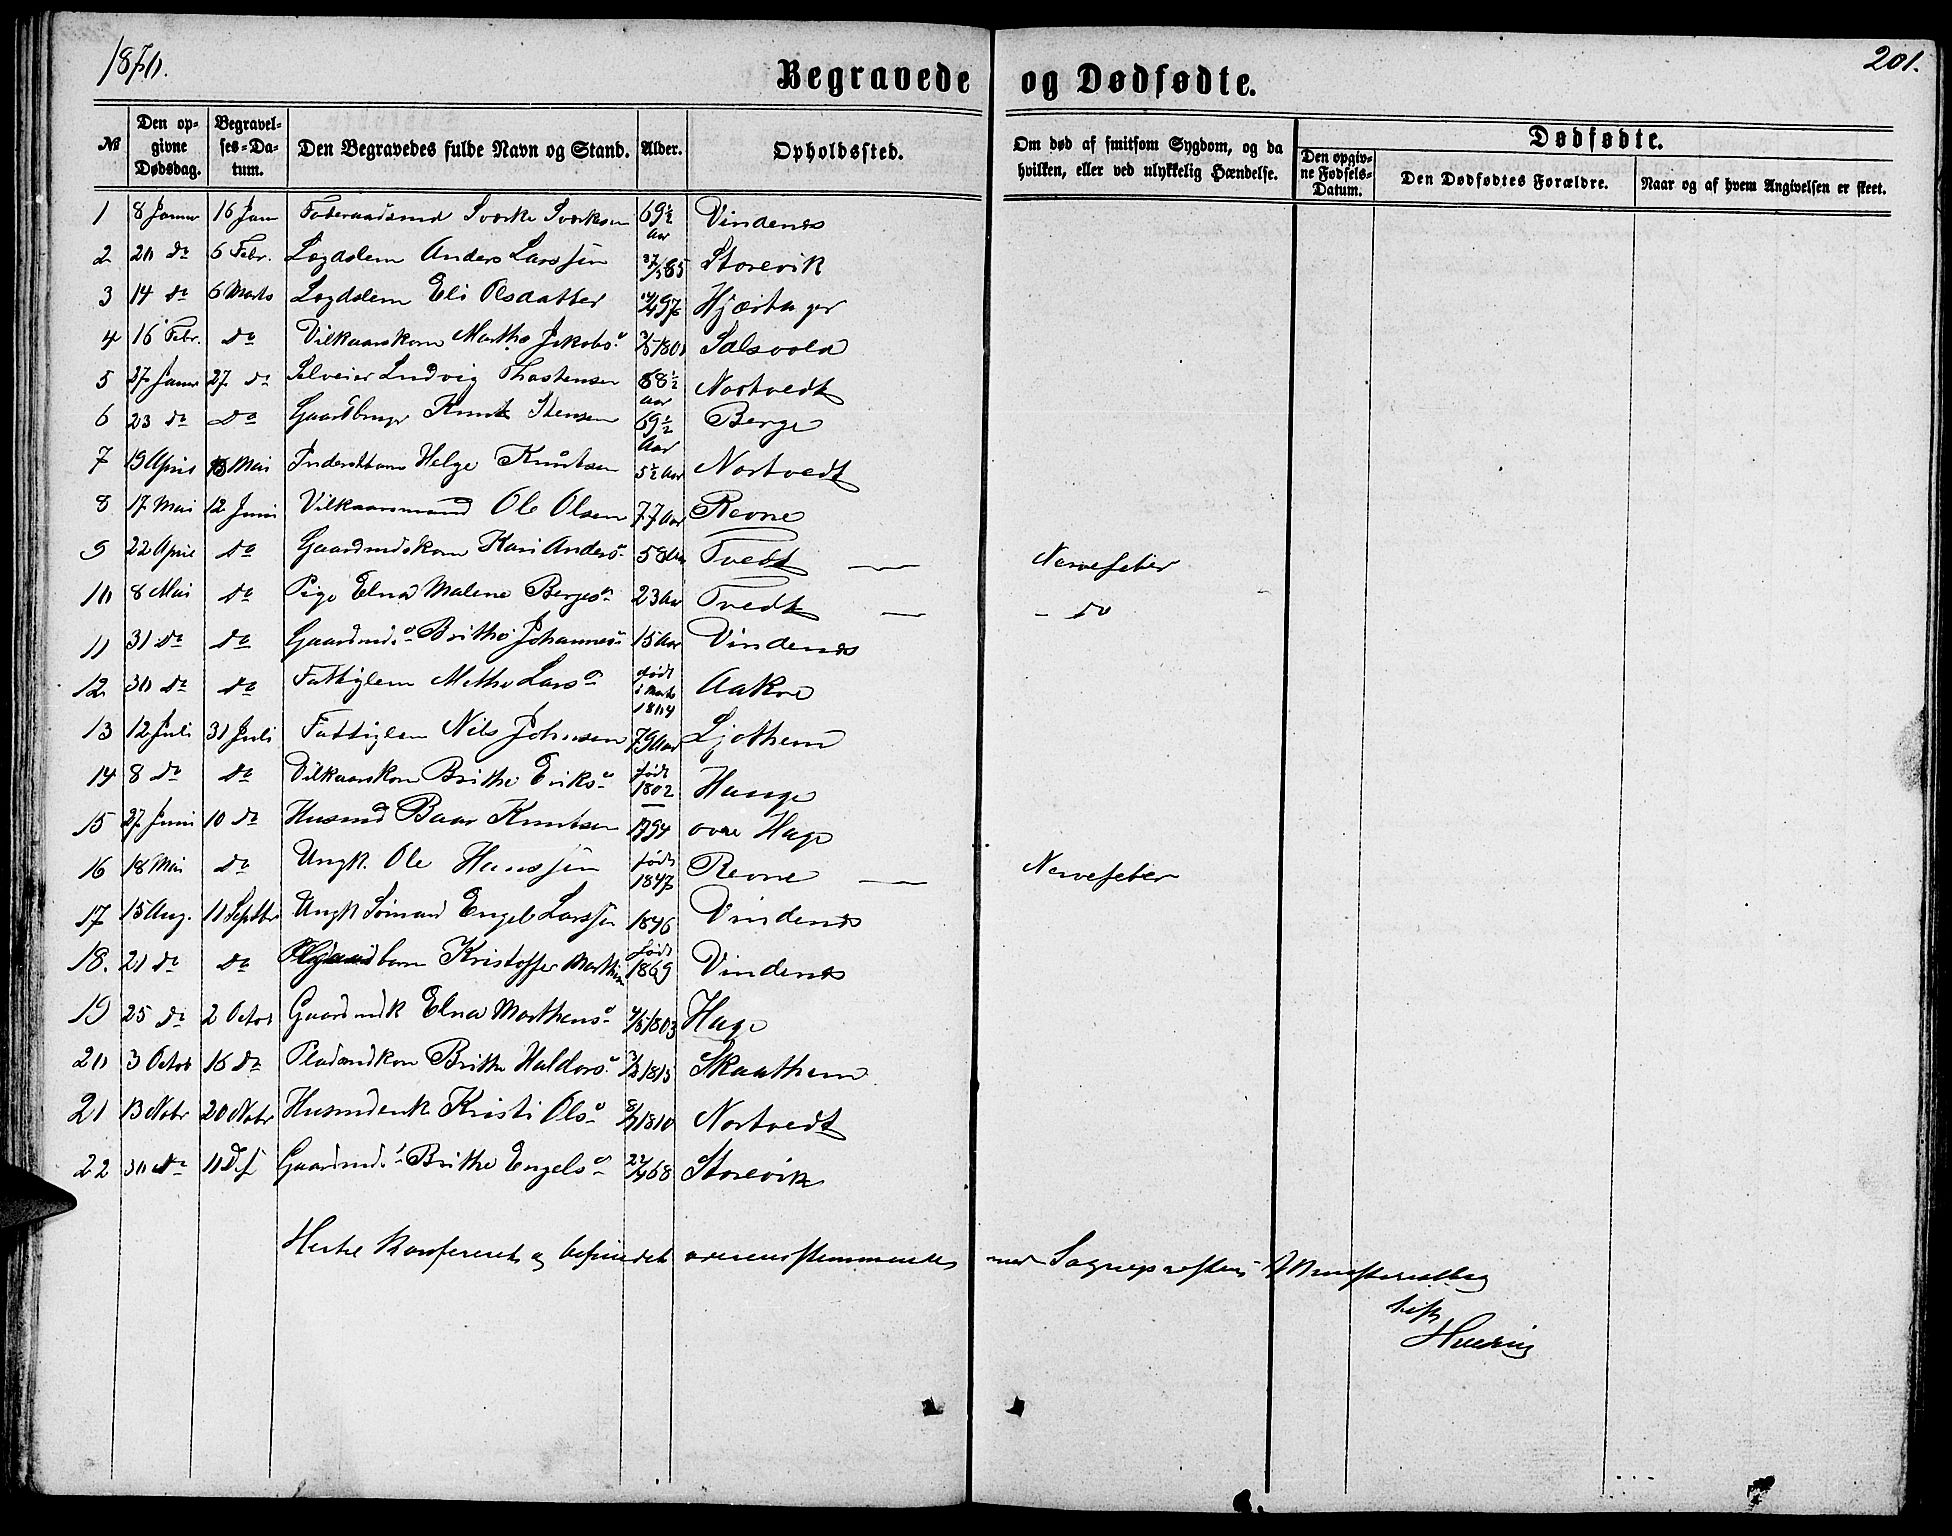 1870.
201.
Begravede og Dødfødte.
№ Den opgivne Dødsdag. Begravelses-Datum. Den Begravedes fulde Navn og Stand. Alder. Opholdssted. Om død af smitsom Sygdom, og da hvilken, eller ved ulykkelig Hændelse. Dødfødte. Den opgivne Fødsels-Datum. Den Dødfødtes Forældre. Naar og af hvem Angivelsen er skeet.
1 8 Januar 16 Jan Sværke Sværksen 69½ Aar Vindenes
2 20 do 6 Febr. Lægdslem Anders Larssen 85 Storevik
3 14 do 6 Marts Lægdslem Eli Olsdatter 97 Hjærtager
4 16 Febr. do Vilkaarskone Martha Jakobsd 1801 Salsvold
5 27 Januar 27 do Selveier Ludvig Thostensen 68½ aar Nortvedt
6 23 do do Gaardbruger Knut Stensen 69½ Aar Berge
7 19 April 15 Mai Inderstbarn Helge Knutsen 5½ Aar Nortvedt
8 17 Mai 12 Juni Vilkaarsmand Ole Olsen 77 Aar Revne
9 22 April do Gaardmdskone Kari Andersd 58 Aar Tvedt — Nervefeber
10 8 Mai do Pige Elna Malene Bergesd 23 Aar Tvedt — - do
11 31 do do Gaardmdsd Brithe Johannesd 15 Aar Vindenes
12 30 do do Fattiglem Methe Larsd født i Marts 1804 Aakre
13 12 Juli 31 Juli Fattiglem Nils Johnsen 79 Aar Ljothem
14 8 do do Vilkaarskone Brithe Eriksd født 1802 Hauge
15 27 Juni 10 do Husmd Baar Knutsen 1794 øvre Hage
16 18 Mai do Ungk. Ole Hanssen født 1847 Revne — Nervefeber
17 15 Aug. 11 Septbr Ungk Sømand Engel Larssen 1846 Vindenes
18. 21 do do Kristoffer Marthin født 1869 Vindenes
19 25 do 2 Octob Gaardmdk Elna Marthensd 4/5 1803 Hage
20 3 Octob 16 do Pladsmdkone Brithe Haldorsd 1815 Skaathem
21 13 Novbr 20 Novbr Husmdenk Kristi Olsd 1810 Nortvedt
22 30 do 11 Des Gaardmdsd Brithe Engelsd 68 Storevik
konfereret og befundet overensstemmende med Sognepræstens Ministerialbog